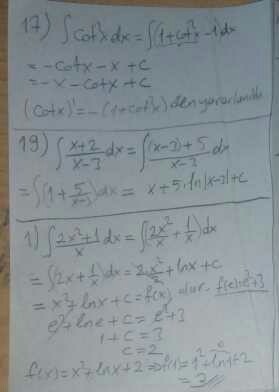 17) ∫cot²x dx = ∫(1+cot²x -1)dx
= -cotx - x + c
= -x - cotx + c
(cotx)' = -(1+cot²x) den yararlanıldı
19) ∫ x+2/x-3 dx = ∫ (x-3)+5/x-3 dx
= ∫(1 + 5/x-3)dx = x + 5.ln|x-3|+c
1) ∫ 2x²+1/x dx = ∫(2x²/x + 1/x)dx
= ∫(2x + 1/x)dx = 2.x²/2 + lnx + c
= x² + lnx + c = f(x) dır. f(e)=e²+3
e² + lne + c = e² + 3
1 + c = 3
c = 2
f(x) = x² + lnx + 2 ⇒ f(1) = 1² + ln1 + 2
= 3 //